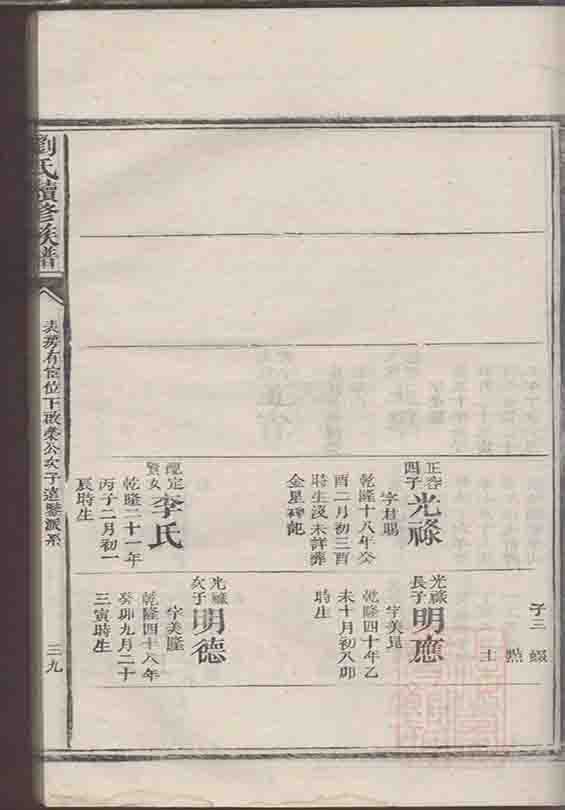 劉氏續修族譜
長房有信位下啟榮公次子遠鑒派系
三九
正春四子
光祿
字君賜
乾隆十八年癸
酉二月初三酉
時生沒未詳葬
金星碑記
龍定賢女
李氏
乾隆二十一年
丙子二月初一
辰時生
子三
士
光祿長子
明應
字美崑
乾隆四十年乙
未十月初八卯
時生
光祿次子
明德
字美隆
乾隆四十八年
癸卯九月二十
三寅時生